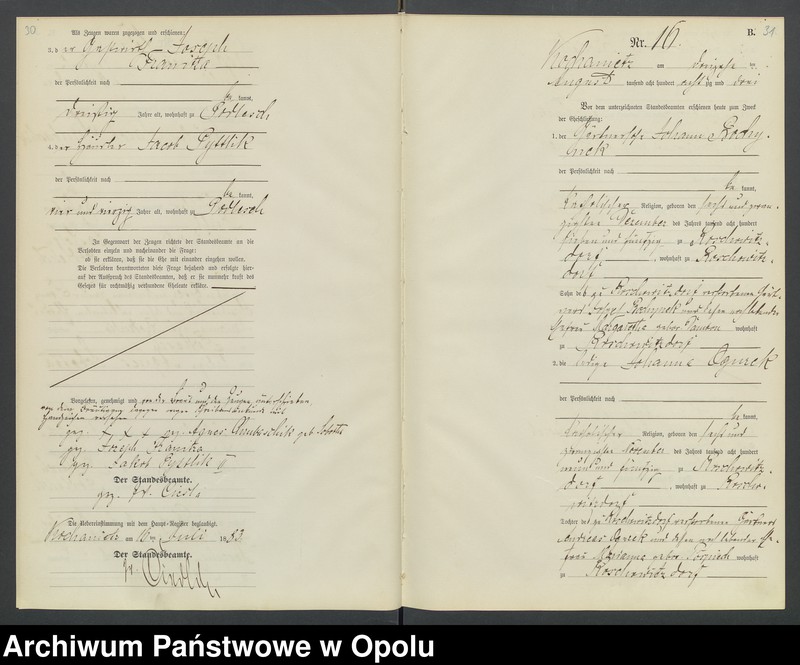 30
Als Zeugen waren zugezogen und erschienen:
3. der Gastwirth Joseph
Franitza
der Persönlichkeit nach
be kannt,
dreißig Jahre alt, wohnhaft zu Podlesch
4. der Häusler Jacob Pysslik
der Persönlichkeit nach
be kannt,
vier und vierzig Jahre alt, wohnhaft zu Podlesch
In Gegenwart der Zeugen richtete der Standesbeamte an die
Verlobten einzeln und nacheinander die Frage:
ob sie erklären, daß sie die Ehe mit einander eingehen wollen.
Die Verlobten beantworteten diese Frage bejahend und erfolgte hier-
auf der Ausspruch des Standesbeamten, daß er sie nunmehr kraft des
Gesetzes für rechtmäßig verbundene Eheleute erkläre.
Vorgelesen, genehmigt und von der Braut und den Zeugen unterschrieben,
von dem Bräutigam wegen Schreibensunkunde mit
Handzeichen versehen
gez. + + + gez. Agnes geb.
gez. Joseph Franitza
gez. Jakob Pysslik II
Der Standesbeamte.
gez. Fr. Ciesla
Die Uebereinstimmung mit dem Haupt-Register beglaubigt.
Kochanietz am 16ten Juli 1883.
Der Standesbeamte.
31
B.
Nr. 16.
Kochanietz am dreizehnten
August tausend acht hundert achtzig und drei
Vor dem unterzeichneten Standesbeamten erschienen heute zum Zweck
der Eheschließung:
1. der Gärtnersohn Johann Rochy-
nek
der Persönlichkeit nach
be kannt,
katholischer Religion, geboren den sechs und zwan-
zigsten Dezember des Jahres tausend acht hundert
sieben und fünfzig zu Roschowitz-
dorf, wohnhaft zu Roschowitz-
dorf
Sohn des zu Roschowitzdorf verstorbenen
Josef Rochynek und dessen noch lebender
Ehefrau geborne wohnhaft
zu Roschowitzdorf
2. die ledige Johanna Ogurek
der Persönlichkeit nach
be kannt,
katholischer Religion, geboren den sechs und
zwanzigsten November des Jahres tausend acht hundert
neun und fünfzig zu Roschowitz-
dorf, wohnhaft zu Roscho-
witzdorf
Tochter des zu Roschowitzdorf verstorbenen Gärtners
Andreas Ogurek und dessen noch lebenden Ehe-
frau Marianna geborne wohnhaft
zu Roschowitzdorf
Archiwum Państwowe w Opolu